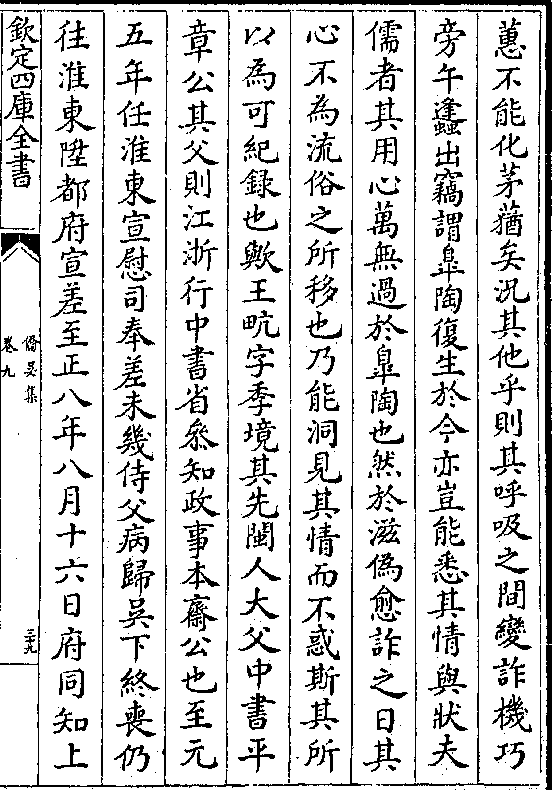 蕙不能化茅蕕矣況其他乎則其呼吸之間變詐機巧
旁午蠭出竊謂臯陶復生於今亦豈能悉其情與狀夫
儒者其用心萬無過於臯陶也然於滋偽愈詐之日其
心不為流俗之所移也乃能洞見其情而不惑斯其所
以為可紀録也歟王畝字季境其先閩人大父中書平
章公其父則江浙行中書省叅知政事本齋公也至元
五年任淮東宣慰司奉差未幾侍父病歸吳下終喪仍
往淮東陞都府宣差至正八年八月十六日府同知上
欽定四庫全書
僑吳集
卷九
三九